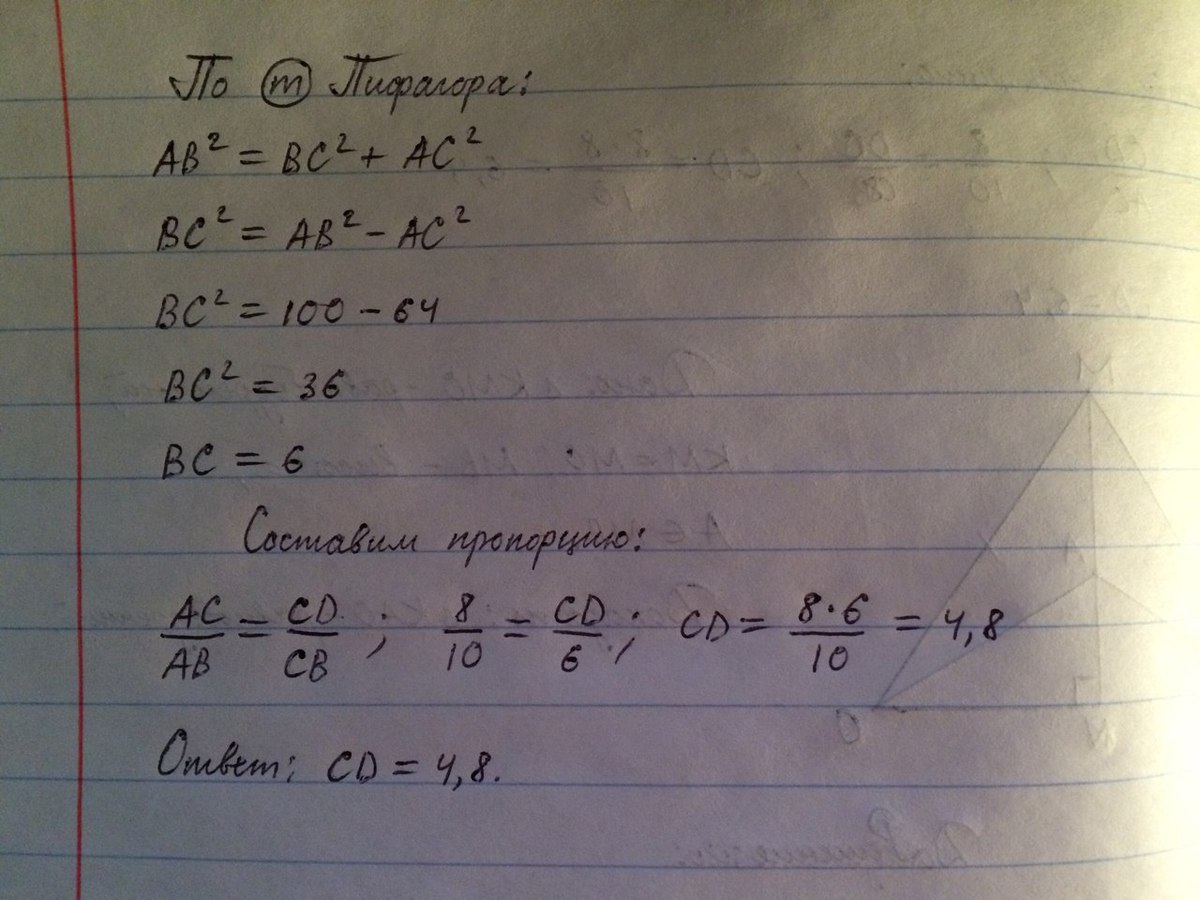 По (т) Пифагора:
AB² = BC² + AC²
BC² = AB² - AC²
BC² = 100 - 64
BC² = 36
BC = 6
Составим пропорцию:
AC/AB = CD/CB ; 8/10 = CD/6 ; CD = 8·6/10 = 4,8
Ответ: CD = 4,8.